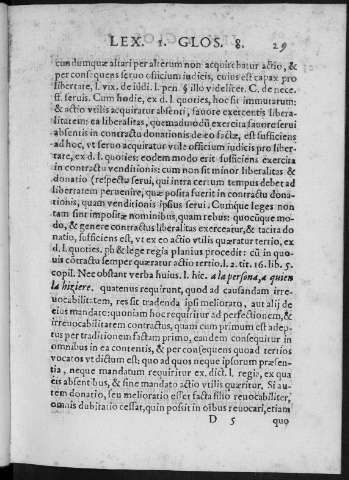 LEX. 1. GLOS. 8. 29
cundumquæ altari per alterum non acquirebatur actio, &
per consequens seruo officium iudicis, cuius est capax pro
libertare, l. vix. de iudi. l. pen. § illo videlicet. C. de nece.
st. seruis. Cum hodie, ex d. l. quoties, hoc sit immutarum:
& actio vtilis acquiratur absenti, fauore exercentis libera-
litatem: ea liberalitas, quemadmodũ exercita fauore serui
absentis in contractu donationis de eo factæ, est sufficiens
ad hoc, vt seruo acquiratur vtile officium iudicis pro liber-
tare, ex d. l. quoties: eodem modo erit sufficiens exercita
in contractu venditionis: cum non sit minor liberalitas &
donatio (respectu serui, qui intra certum tempus debet ad
libertatem peruenire, quæ posita fuerit in contractu dona-
tionis, quam venditionis ipsius serui. Cumque leges non
tam sint impositæ nominibus, quam rebus: quocũque mo-
do, & genere contractus liberalitas exerceatur, & tacita do
natio, sufficiens est, vt ex eo actio vtilis quæratur tertio, ex
d. l. quoties, ph & lege regia planius procedit: cũ in quo-
uis cõtractu semper quæratur actio tertio, l. 2. tit. 16. lib. 5.
copil. Nec obstant verba huius. l. hic. a la persona, a quien
la hiziere. quatenus requirunt, quod ad causandam irre-
uocabilitatem, res sit tradenda ipsi meliorato, aut alij de
eius mandato: quoniam hoc requiritur ad perfectionem, &
irreuocabilitatem contractus, quam cum primum est adep-
tus per traditionem factam primo, eandem consequitur in
omnibus in ea contentis, & per consequens quoad tertios
vocatos vt dictum est: quo ad quos neque ipsorum præsen-
tia, neque mandatum requiritur ex dict. l. regia, ex qua
eis absentibus, & sine mandato actio vtilis quæritur. Si au-
tem donatio, seu melioratio esset facta filio reuocabiliter,
omnis dubitatio cessat, quin possit in oĩbus reuocari, etiam
D 5 quo